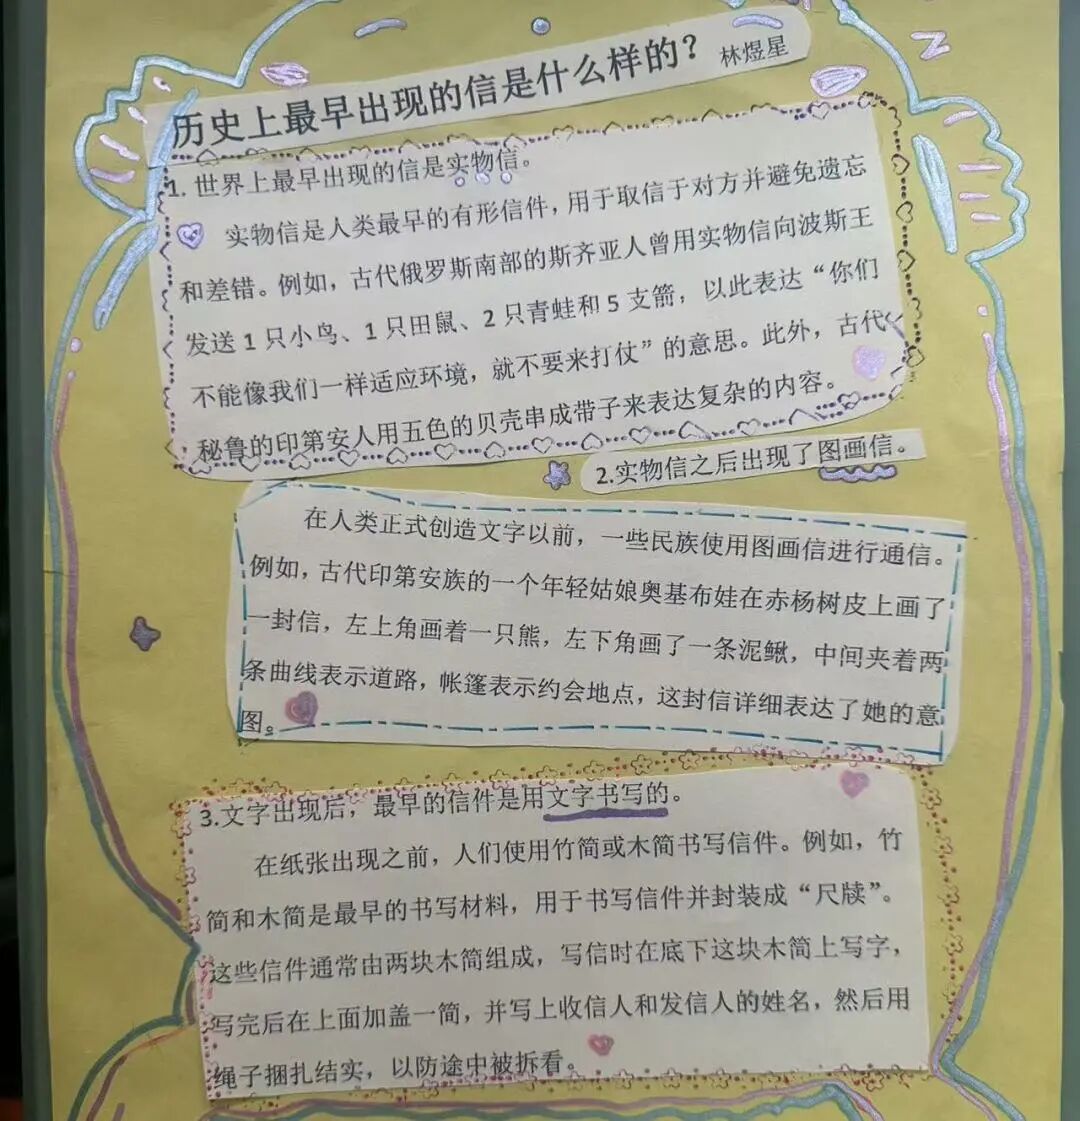 历史上最早出现的信是什么样的？ 林煜星
1. 世界上最早出现的信是实物信。
实物信是人类最早的有形信件，用于取信于对方并避免遗忘
和差错。例如，古代俄罗斯南部的斯齐亚人曾用实物信向波斯王
发送 1 只小鸟、1 只田鼠、2 只青蛙和 5 支箭，以此表达“你们
不能像我们一样适应环境，就不要来打仗”的意思。此外，古代
秘鲁的印第安人用五色的贝壳串成带子来表达复杂的内容。
2.实物信之后出现了图画信。
在人类正式创造文字以前，一些民族使用图画信进行通信。
例如，古代印第安族的一个年轻姑娘奥基布娃在赤杨树皮上画了
一封信，左上角画着一只熊，左下角画了一条泥鳅，中间夹着两
条曲线表示道路，帐篷表示约会地点，这封信详细表达了她的意
图。
3.文字出现后，最早的信件是用文字书写的。
在纸张出现之前，人们使用竹简或木简书写信件。例如，竹
简和木简是最早的书写材料，用于书写信件并封装成“尺牍”。
这些信件通常由两块木简组成，写信时在底下这块木简上写字，
写完后在上面加盖一简，并写上收信人和发信人的姓名，然后用
绳子捆扎结实，以防途中被拆看。